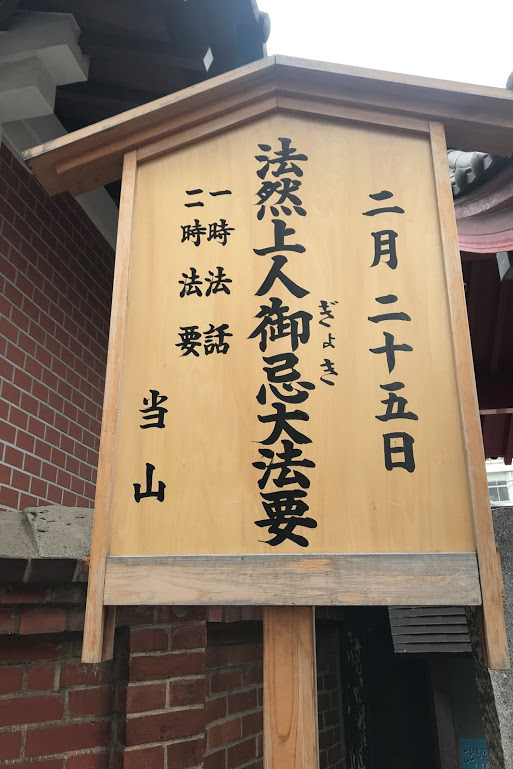 二月二十五日
法然上人御忌大法要
ぎょき
一時法話
二時法要
当山